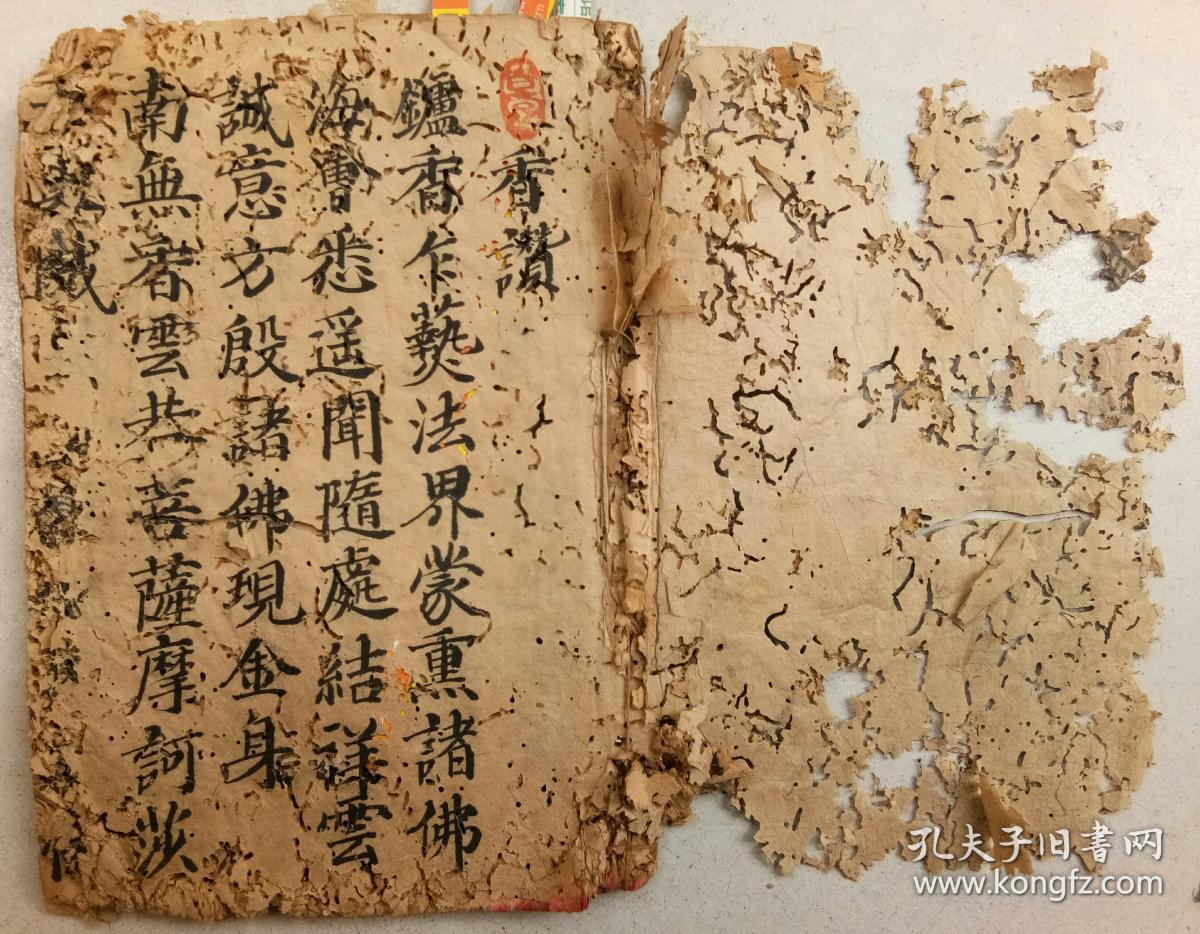 香讚
鑪香乍爇法界蒙熏諸佛
海會悉遥聞隨處結祥雲
誠意方殷諸佛現金身
南無香雲盖菩薩摩訶莎
孔夫子旧書网
www.kongfz.com